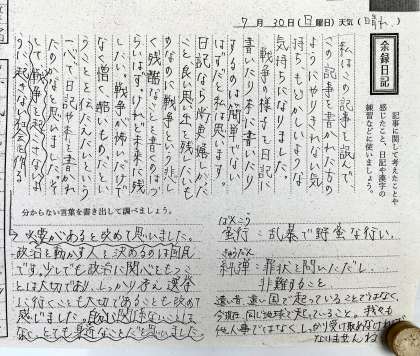 7月30日(日曜日)天気(晴れ)
余録日記
記事に関して考えたことや
感じたこと、日記や漢字の
練習などに使いましょう。
私はこの記事を読んで、
この記事を書かれた方の
ようにやりきれない気
持ちもどかしいような
気持ちになりました。
戦争の様子を日記に
書いたり本に書いたり
するのは簡単でない
はずだと私は思います。
日記なら尚更嬉しか
こと良い思い出を残したいも
のなのに戦争という悲し
く残酷なことを書くのはつ
らいはずけれど未来に残
したい。戦争が怖いだけで
なく憎く酷いものだとい
うことを伝えたいという
一心で日記や本を書かれ
たのかなと思いました。そ
して戦争を起こさないよ
う起きない社会を作る
分からない言葉を書き出して調べましょう。
必要があると改めて思いました。
政治を動かす人を決めるのは国民
です。少しでも政治に関心をもつこ
とは大切であり、しっかり考え選挙
に行くことも大切であることも改めて
感じました。
なく、とても身近なことだと思いました。
ばんこう
蛮行:乱暴で野蛮な行い。
きゅうだん
糾弾:罪状を問いただし、
非難すること。
遠い昔、遠い国で起っていることではなく、
今現在、同じ地球で起っていること。我々も
他人事ではなく、しっかり受け取めなければ
なりませんね。